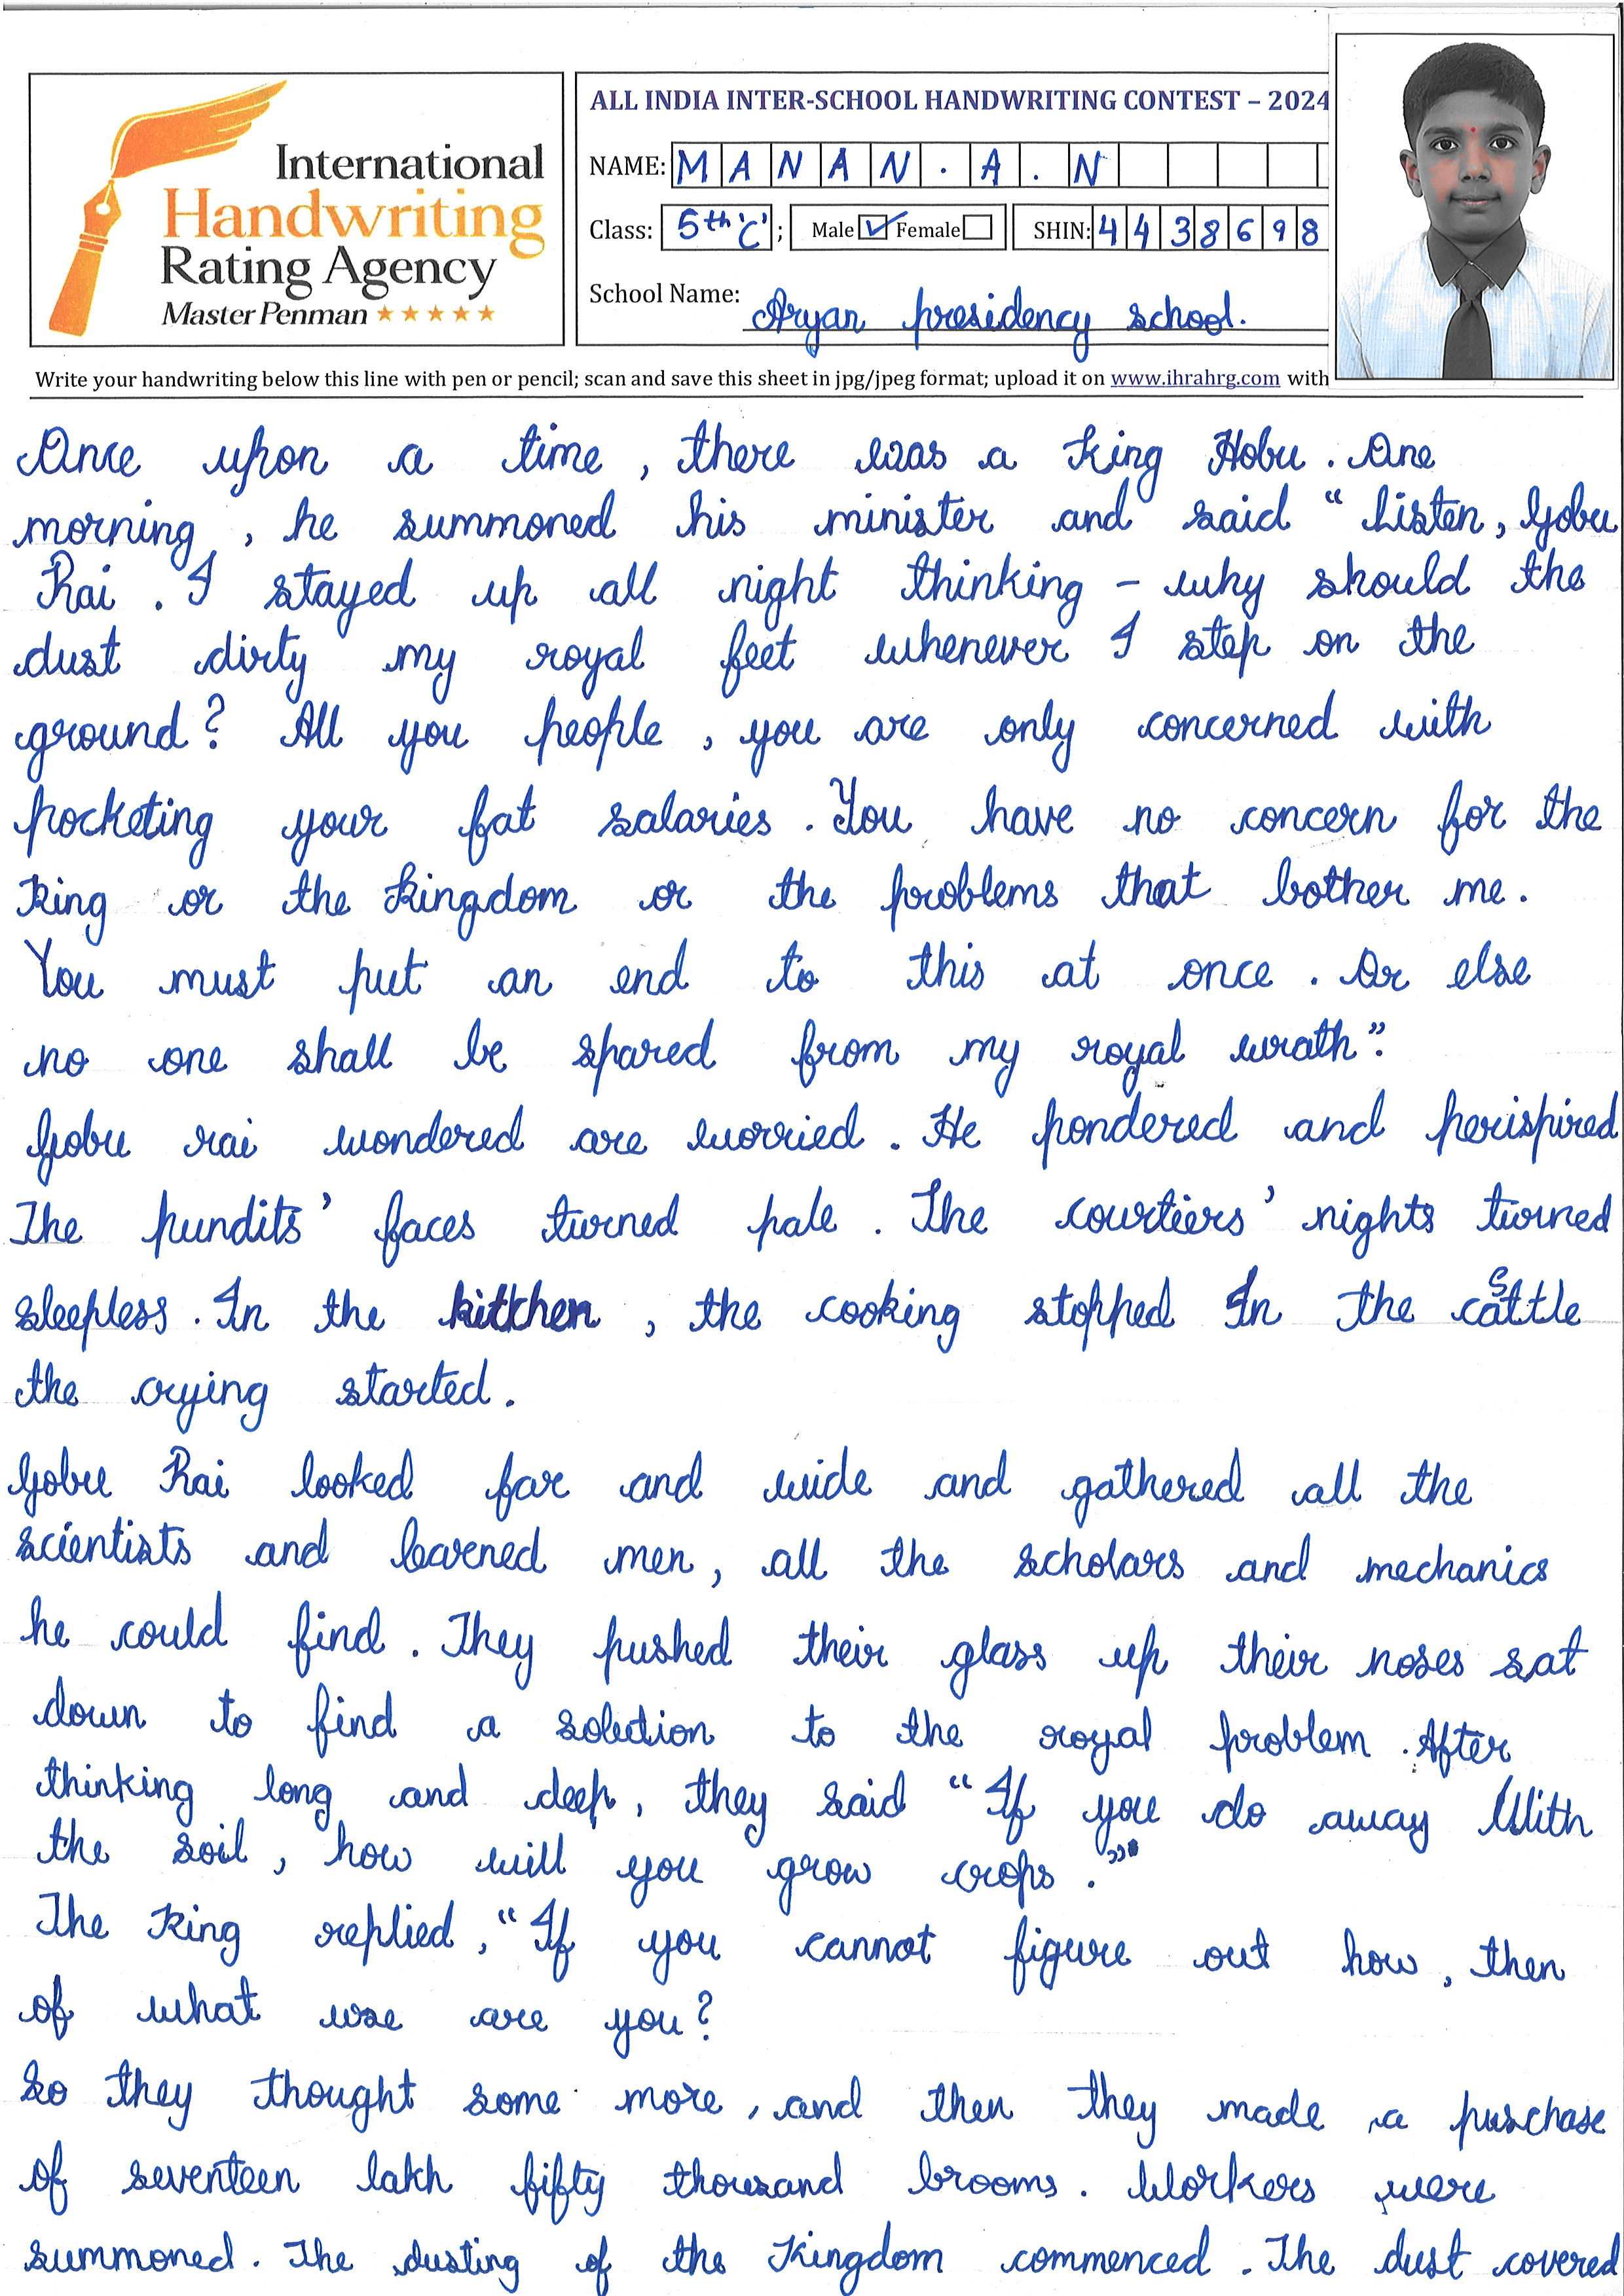 International
Handwriting
Rating Agency
Master Penman
ALL INDIA INTER-SCHOOL HANDWRITING CONTEST – 2024
NAME: MANAN.A.N
Class: 5th 'C' ; Male Female SHIN: 4438698
School Name: Aryan presidency school.
Write your handwriting below this line with pen or pencil; scan and save this sheet in jpg/jpeg format; upload it on www.ihrahrg.com with
Once upon a time , there was a King Hobu . One
morning , he summoned his minister and said " Listen, Gobu
Rai . I stayed up all night thinking – why should the
dust dirty my royal feet whenever I step on the
ground? All you people , you are only concerned with
pocketing your fat salaries . You have no concern for the
King or the kingdom or the problems that bother me .
You must put an end to this at once . Or else
no one shall be spared from my royal wrath".
Gobu rai wondered are worried . He pondered and perispired
The pundits' faces turned pale . The courtiers' nights turned
sleepless . In the kitchen , the cooking stopped In the castle
the crying started .
Gobu Rai looked far and wide and gathered all the
scientists and learned men , all the scholars and mechanics
he could find . They pushed their glass up their noses sat
down to find a solution to the royal problem . After
thinking long and deep , they said " If you do away With
the soil , how will you grow crops ."
The King replied , " If you cannot figure out how , then
of what use are you ?
So they thought some more , and then they made a purchase
of seventeen lakh fifty thousand brooms . Workers were
summoned . The dusting of the Kingdom commenced . The dust covered